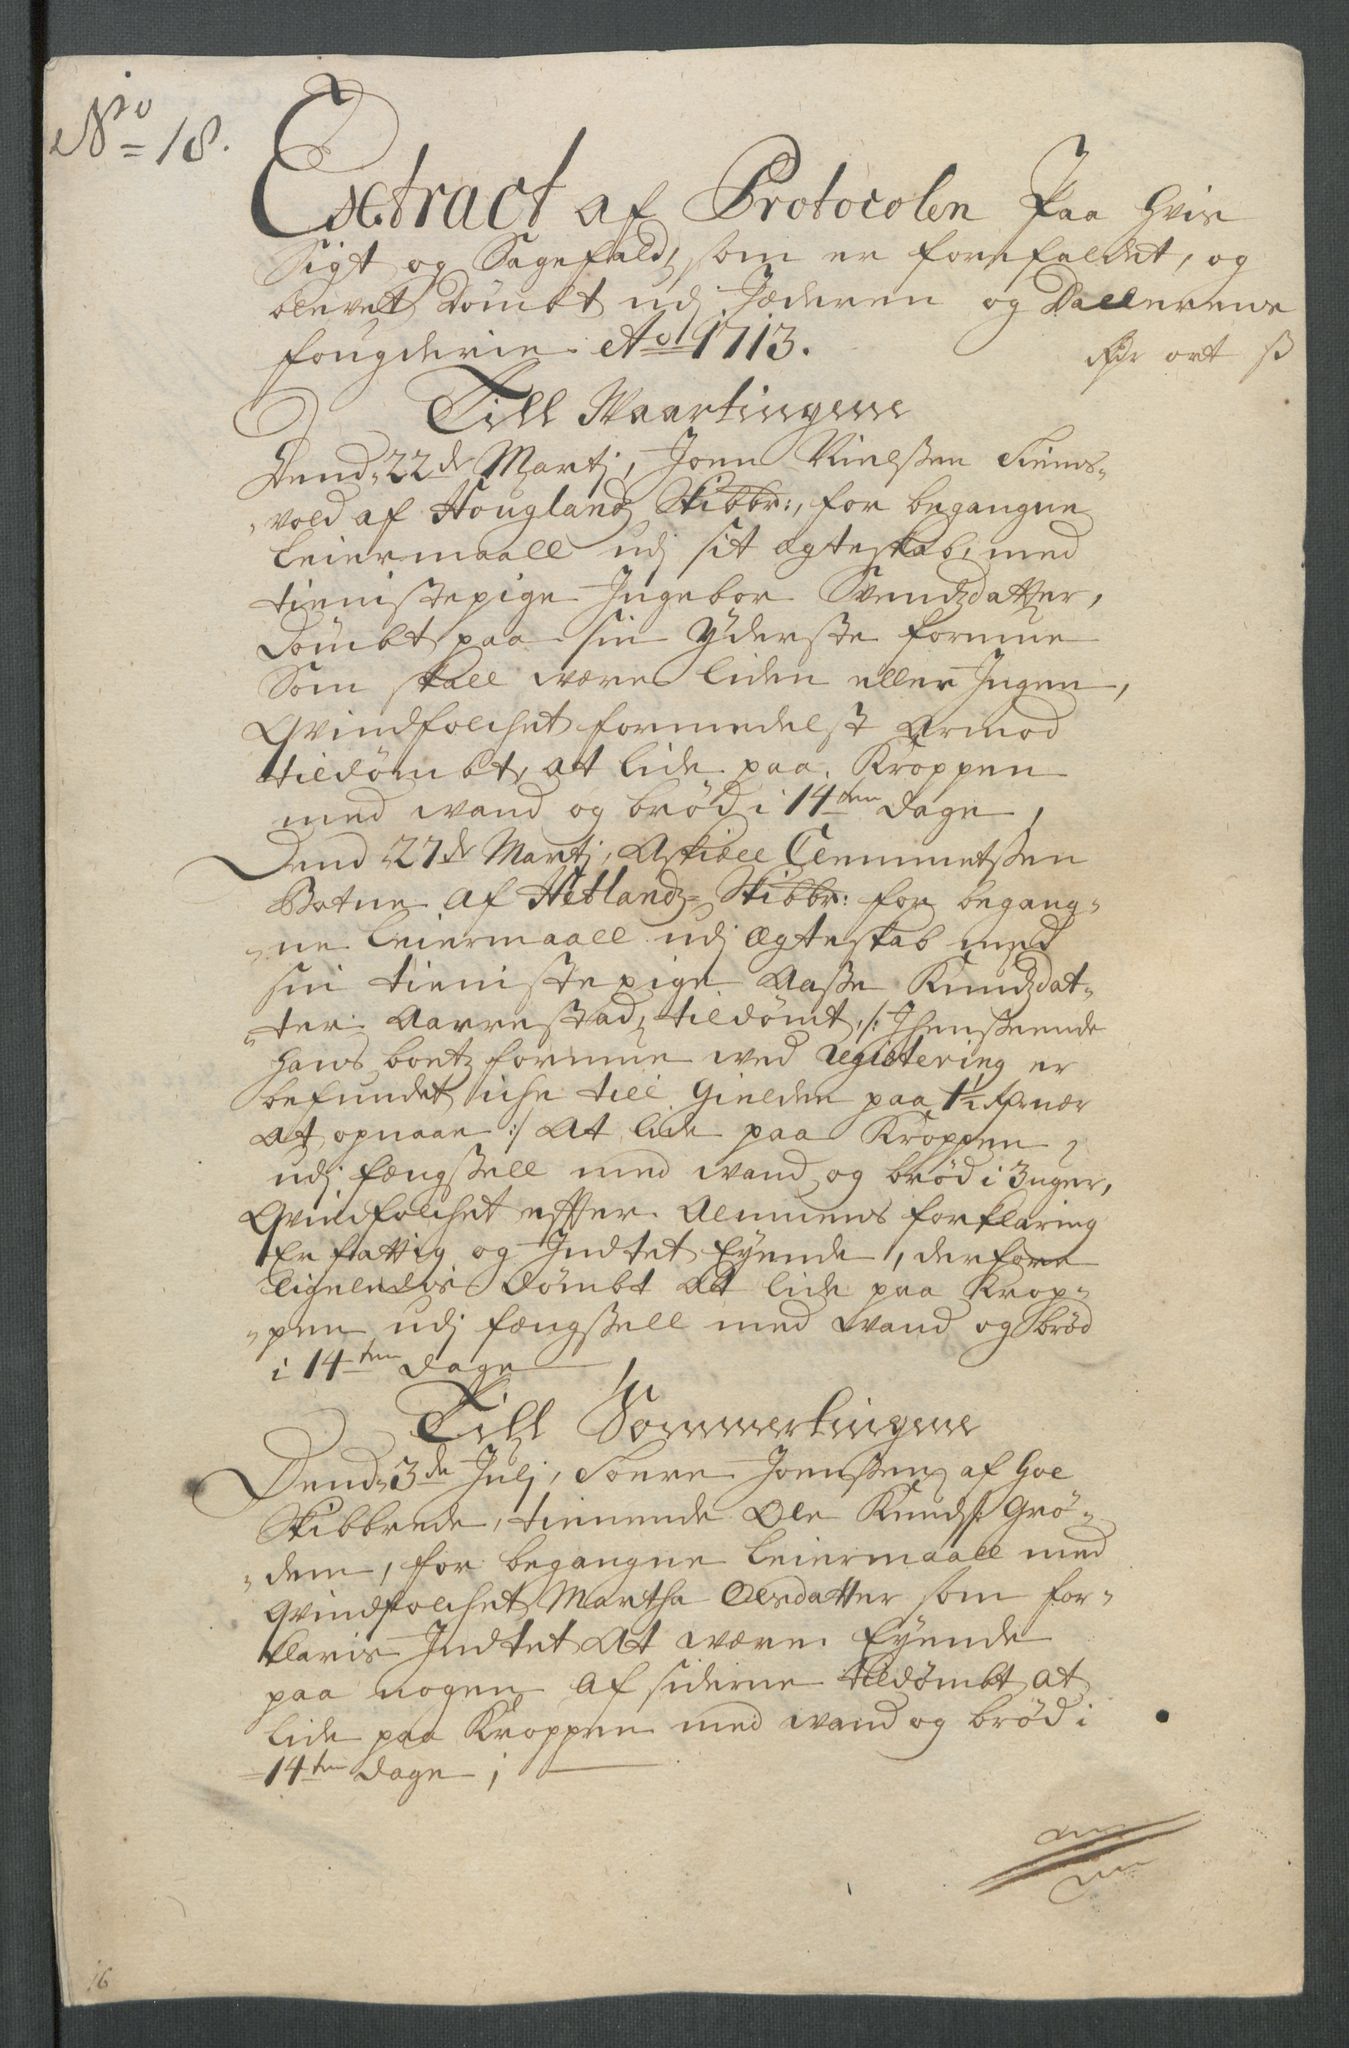 No 18.
Extract af Protocolen Paa hvis
Sigt og Sagefald, som er forefaldet, og
blevet Dömbt udj Jæderen og Dallernes
fougderie Ao 1713.
Rdr ort s
Till Waartingene
Dend 22de Martj, Joen Nielssen Fiems-
vold af Hougland Skibbr:, for begangne
Leiermaall udj sit ægteskab, med
tienistepige Ingebor Svendzdatter,
Dömbt paa sin yderste formue
Som skall være liden eller Ingen,
Qvindfolchet formedelst Armod
tildömbt, at lide paa Kroppen
med wand og bröd i 14ten dage,
Dend 27de Martj, Askiell Clemmetssen
Botne af Hetlandz Skibbr: for begang-
ne Leiermaall udj Ægteskab med
sin tienistepige Aasse Knudzdat-
ter Aarrestad, tildömt /: Ihenseende
hans boetz formue wed registering er
befundet iche till Gielden paa 1½ Rdr nær
at opnaae :/ At lide paa Kroppen
udj fængssell med wand og bröd i 3 uger,
Qvindfolchet effter Almuens forklaring
Er fattig og Indtet Eyende, derfore
ligeledis dömbt at lide paa Krop-
pen udj fængssell med wand og bröd
i 14ten dage
Till Sommertingene
Dend 3de Julj, Sören Joenssen af Goe
Skibbrede, tienende Ole Knuds: Grö-
dem, for begangne Leiermaall med
Qvindfolchet Martha Olesdatter som for-
klaris Indtet at være Eyende
paa nogen af siderne tildömbt at
lide paa Kroppen med wand og bröd i
14ten dage,
16